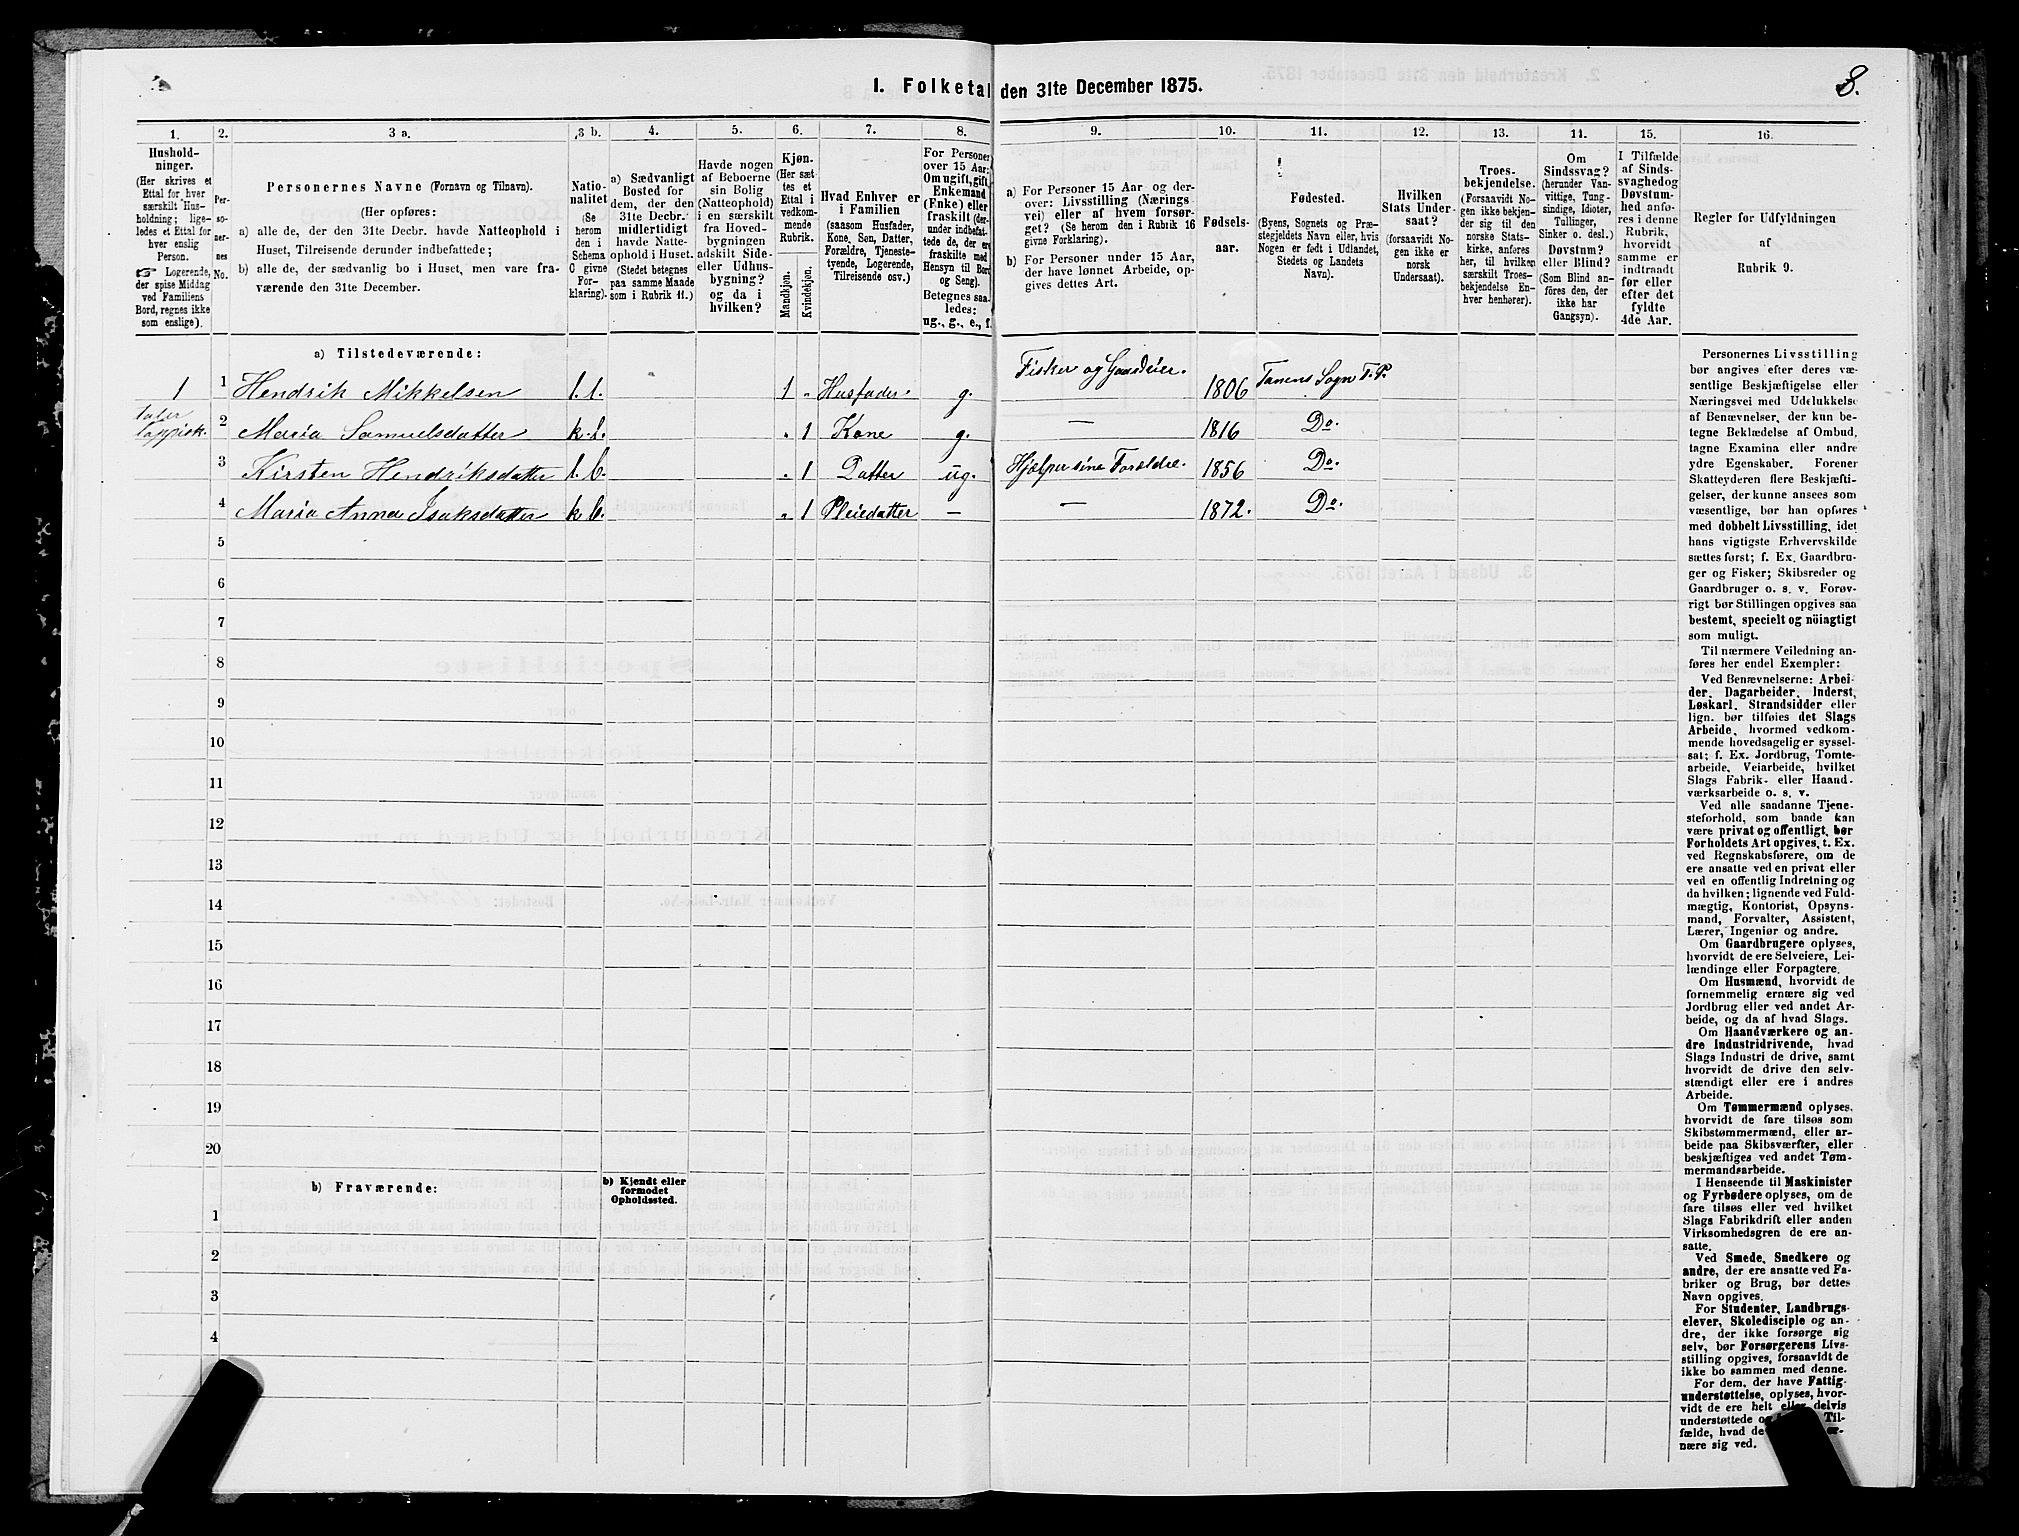 1. Folketal den 31te December 1875.
8.
1.
2.
3 a.
3 b.
4.
5.
6.
7.
8.
9.
10.
11.
12.
13.
14.
15.
16.
Hushold-
ninger.
(Her skrives et
Ettal for hver
særskilt Hus-
holdning; lige-
ledes et Ettal for
hver enslig
Person.
☞ Logerende,
der spise Middag
ved Familiens
Bord, regnes ikke
som enslige).
Per-
so-
ner-
nes
No.
Personernes Navne (Fornavn og Tilnavn).
(Her opføres:
a) alle de, der den 31te Decbr. havde Natteophold i
Huset, Tilreisende derunder indbefattede;
b) alle de, der sædvanlig bo i Huset, men vare fra-
værende den 31te December.
Natio-
nalitet
(Se
herom
den i
Schema
C givne
For-
klaring).
a) Sædvanligt
Bosted for
dem, der den
31te Decbr.
midlertidigt
havde Natte-
ophold i Huset.
(Stedet betegnes
paa samme Maade
som i Rubrik 11.)
Havde nogen
af Beboerne
sin Bolig
(Natteophold)
i en særskilt
fra Hoved-
bygningen
adskilt Side-
eller Udhus-
bygning?
og da i
hvilken?
Kjøn.
(Her sæt-
tes et
Ettal i
vedkom-
mende
Rubrik.
Mandkjøn.
Kvindekjøn.
Hvad Enhver er
i Familien
(saasom Husfader,
Kone, Søn, Datter,
Forældre, Tjeneste-
tyende, Logerende,
Tilreisende osv.)
For Personer
over 15 Aar:
Om ugift, gift,
Enkemand
(Enke) eller
fraskilt (der-
under indbefat-
tede de, der ere
fraskilte med
Hensyn til Bord
og Seng).
Betegnes saa-
ledes:
ug., g., e., f.
a) For Personer 15 Aar og der-
over: Livsstilling (Nærings
vei) eller af hvem forsør-
get? (Se herom den i Rubrik 16
givne Forklaring).
b) For Personer under 15 Aar,
der have lønnet Arbeide, op-
gives dettes Art.
Fødsels-
aar.
Fødested.
(Byens, Sognets og Præ-
stegjeldets Navn eller, hvis
Nogen er født i Udlandet,
Stedets og Landets
Navn).
Hvilken
Stats Under-
saat?
(forsaavidt No-
gen ikke er
norsk
Undersaat).
Troes-
bekjendelse.
(Forsaavidt No-
gen ikke bekjen-
der sig til den
norske Stats-
kirke, anføres
her, til hvilken
særskilt Troes-
bekjendelse En-
hver henhører).
Om
Sindssvag?
(herunder Van-
vittige, Tung-
sindige, Idioter,
Tullinger,
Sinker o. desl.)
Døvstum?
eller Blind?
(Som Blind an-
føres den, der
ikke har
Gangsyn).
I Tilfælde
af Sinds-
svaghed og
Døvstum-
hed anfø-
res i denne
Rubrik,
hvorvidt
samme er
indtraadt
før eller
efter det
fyldte
4de Aar.
Regler for Udfyldningen
af
Rubrik 9.
a) Tilstedeværende:
1 1 Hendrik Mikkelsen l.l. 1 „ Husfader g. Fisker og Gaardeier. 1806 Tanens Sogn T.P.
taler
lappisk.
2 Maria Samuelsdatter k.l. „ 1 Kone g. — 1816 Do.
3 Kirsten Hendriksdatter l.b. „ 1 Datter ug. Hjælper sine Forældre. 1856 Do.
4 Maria Anna Isaksdatter k b. „ 1 Pleiedatter — — 1872. Do.
5
6
7
8
9
10
11
12
13
14
15
16
17
18
19
20
b) Fraværende:
b) Kjendt eller
formodet
Opholdssted.
1
2
3
4
Personernes Livsstilling
bør angives efter deres væ-
sentlige Beskjæftigelse eller
Næringsvei med Udelukkelse
af Benævnelser, der kun be-
tegne Beklædelse af Ombud,
tagne Examina eller andre
ydre Egenskaber. Forener
Skatteyderen flere Beskjæfti-
gelser, der kunne ansees som
væsentlige, bør han opføres
med dobbelt Livsstilling, idet
hans vigtigste Erhvervskilde
sættes først; f. Ex. Gaardbru-
ger og Fisker; Skibsreder og
Gaardbruger o. s. v. Forøv-
rigt bør Stillingen opgives saa
bestemt, specielt og nöiagtigt
som muligt.
Til nærmere Veiledning an-
føres her endel Exempler:
Ved Benævnelserne: Arbei-
der, Dagarbeider, Inderst,
Løskarl, Strandsidder eller
lign. bør tilføies det Slags
Arbeide, hvormed vedkom-
mende hovedsagelig er syssel-
sat; f. Ex. Jordbrug, Tomte-
arbeide, Veiarbeide, hvilket
Slags Fabrik- eller Haand-
værksarbeide o. s. v.
Ved alle saadanne Tjene-
steforhold, som baade kan
være privat og offentligt, bør
Forholdets Art opgives, t. Ex.
ved Regnskabsførere, om de
ere ansatte ved en privat eller
ved en offentlig Indretning og
da hvilken; lignende ved Fuld-
mægtig, Kontorist, Opsyns-
mand, Forvalter, Assistent,
Lærer, Ingeniør og andre.
Om Gaardbrugere oplyses,
hvorvidt de ere Selveiere, Lei-
lændinge eller Forpagtere.
Om Husmænd, hvorvidt de
fornemmelig ernære sig ved
Jordbrug eller ved andet Ar-
beide, og da af hvad Slags.
Om Haandværkere og an-
dre Industridrivende, hvad
Slags Industri de drive, samt
hvorvidt de drive den selv-
stændigt eller ere i andres
Arbeide.
Om Tømmermænd oplyses,
hvorvidt de fare tilsøs som
Skibstømmermænd, eller ar-
beide paa Skibsværfter, eller
beskjæftiges ved andet Tøm-
mermandsarbeide.
I Henseende til Maskinister
og Fyrbødere oplyses, om de
fare tilsøs eller ved hvilket
Slags Fabrikdrift eller anden
Virksomhedsgren de ere an-
satte.
Ved Smede, Snedkere og
andre, der ere ansatte ved Fa-
briker og Brug, bør dettes
Navn opgives.
For Studenter, Landbrugs-
elever, Skoledisciple og an-
dre, der ikke forsørge sig
selv, bør Forsørgerens Livs-
stilling opgives, forsaavidt de
ikke bo sammen med denne.
For dem, der have Fattig-
understøttelse, oplyses, hvor-
vidt de ere helt eller delvis
understøttede og Til-
fælde, hvad de er-
nære sig ved.